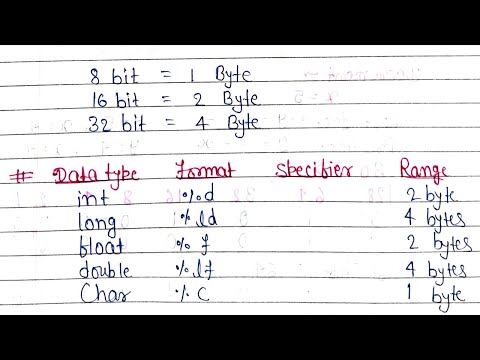 8 bit = 1 Byte
16 bit = 2 Byte
32 bit = 4 Byte
# Datatype Format Specifier Range
int %d 2 byte
long %ld 4 bytes
float %f 2 bytes
double %lf 4 bytes
Char %C 1 byte